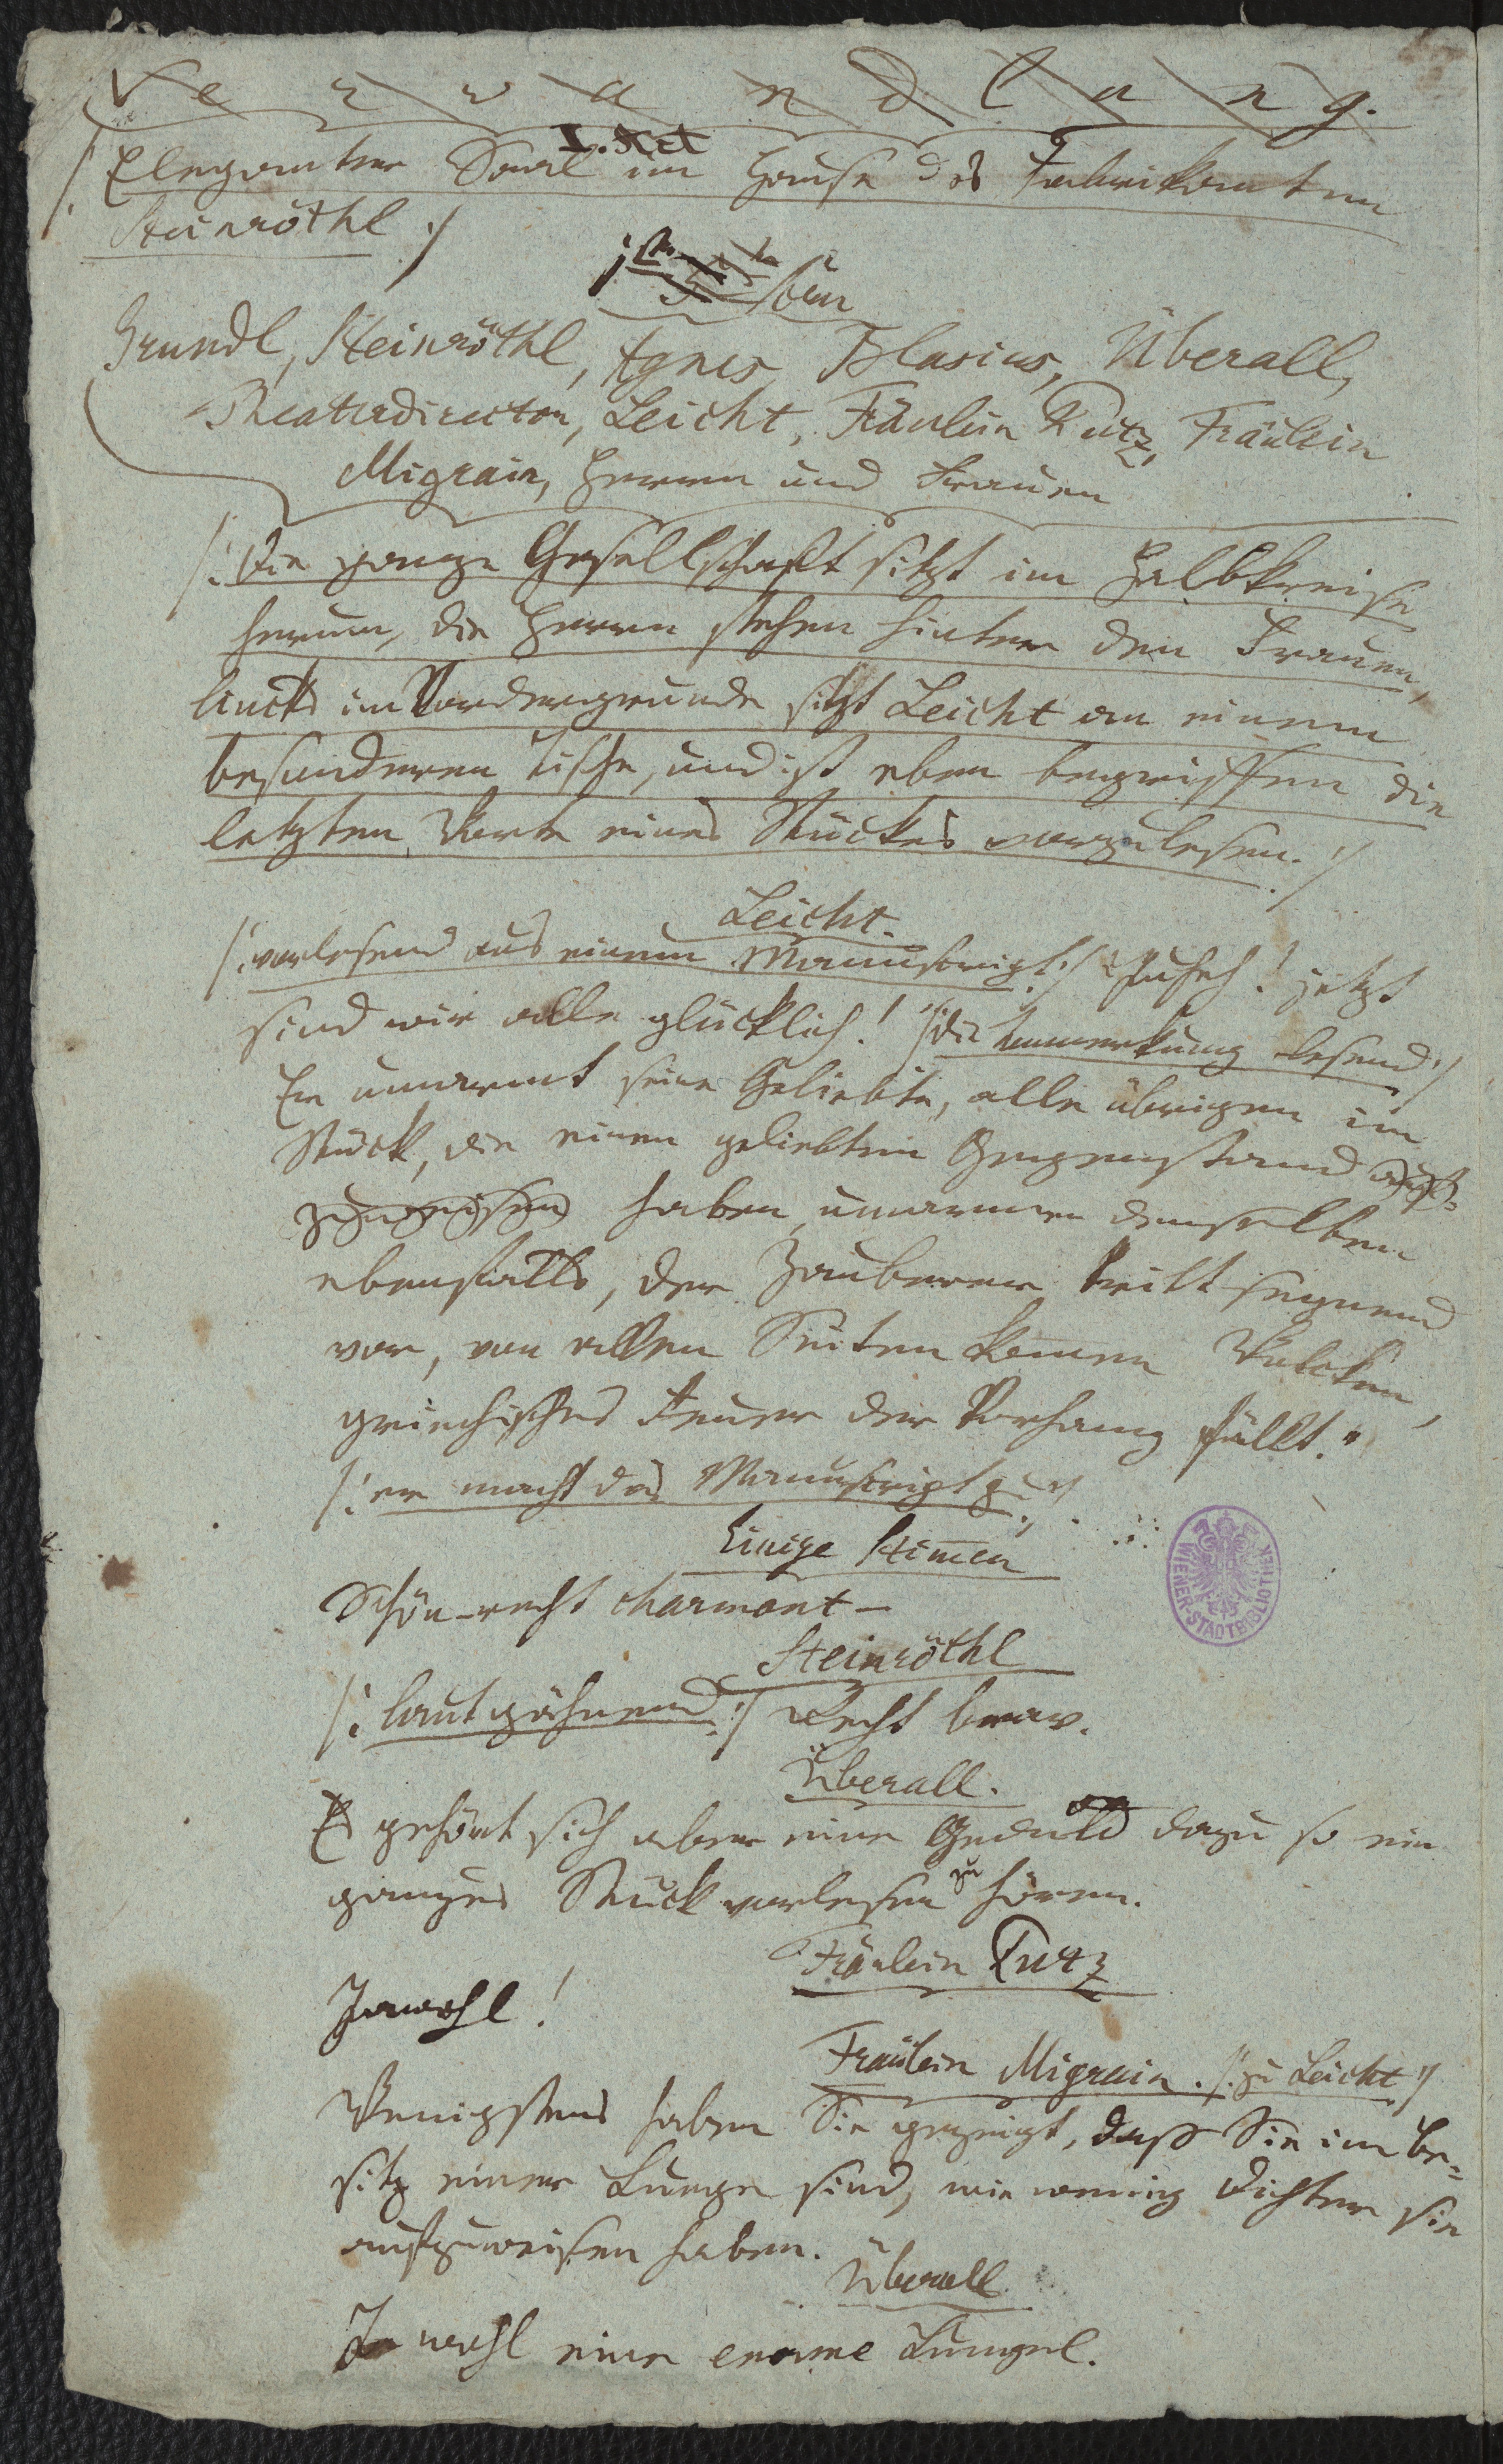 Verwandlung.
I. Act
/: Eleganter Saal im Hause des Fabrikanten
Steinröthl :/
1ste Scen
Grundl, Steinröthl, Agnes, Blasius, Überall,
Theaterdirector, Leicht, Fräulein Putz, Fräulein
Migrain, Herren und Frauen
/: Die ganze Gesellschaft sitzt im Halbkreise
herum, die Herrn stehen hinter den Frauen,
lincks im Vordergrunde sitzt Leicht an einem
besonderen Tische, und ist eben begriffen die
letzten Worte eines Stückes vorzulesen. :/
Leicht.
/: vorlesend aus einem Manuscript :/ "Juheh! jetzt
sind wir alle glücklich!" /: die Anmerkung lesend :/
Er umarmt seine Geliebte, alle übrigen im
Stück, die einen geliebten Gegenstand auf-
zuweisen haben, umarmen denselben
ebenfalls, der Zauberer tritt segnend
vor, von allen Seiten kommen Wolken,
griechisches Feuer der Vorhang fällt."
/: er macht das Manuscript zu :/
Einige Stimmen
Schön – recht charmant –
Steinröthl
/: laut gähnend :/ Recht brav.
Überall.
Es gehört sich aber eine Geduld dazu so ein
ganzes Stück vorlesen zu hören.
Fräulein Putz
Jawohl!
Fräulein Migrain. /: zu Leicht :/
Wenigstens haben Sie gezeigt, daß Sie im Be-
sitz einer Lunge sind, wie wenig Dichter sie
aufzuweisen haben.
Überall
Ja wohl eine enorme Lungel.
WIENER-STADTBIBLIOTHEK